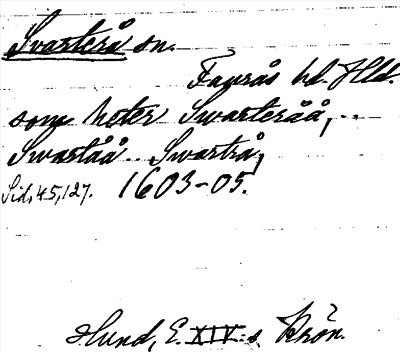 Svarterå sn.
Faurås hd. Hld.
som heter Swarteråå,
Swartåå.. Swartrå,
Sid. 45, 127. 1603-05.
Hund, E. XIV:s Krön.